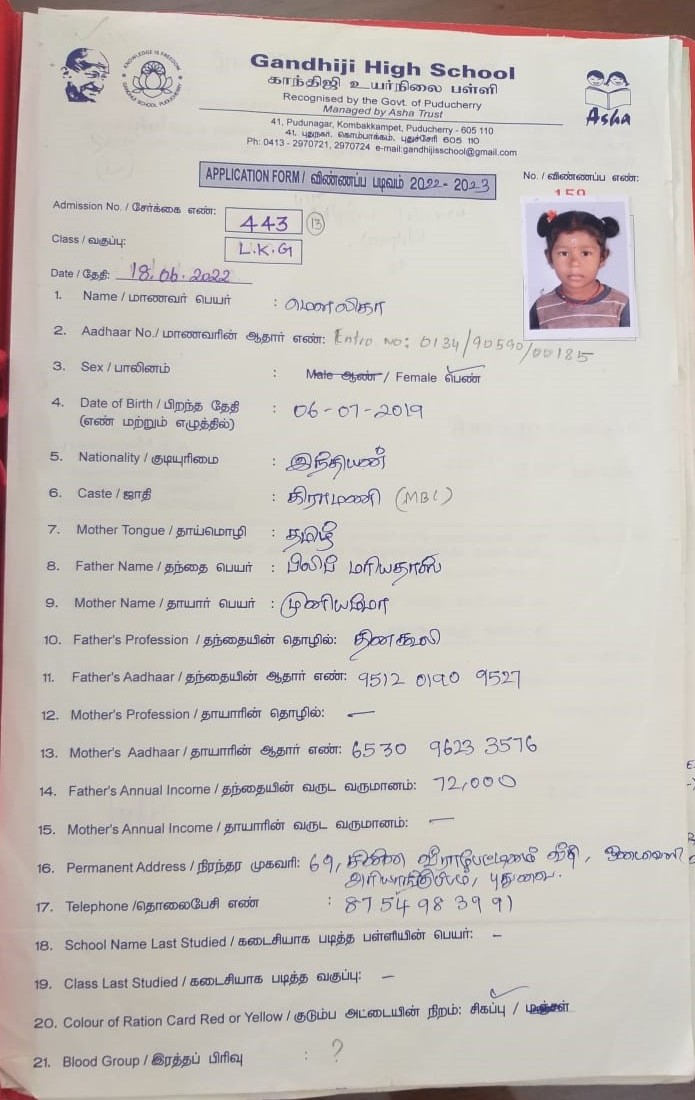 Gandhiji High School
காந்திஜி உயர்நிலை பள்ளி
Recognised by the Govt. of Puducherry
Managed by Asha Trust
41, Pudunagar, Kombakkampet, Puducherry - 605 110
41, புதுநகர், கொம்பாக்கம், புதுச்சேரி 605 110
Ph: 0413 - 2970721, 2970724 e-mail:gandhijisschool@gmail.com
KNOWLEDGE IS FREEDOM
GANDHIJI SCHOOL PUDUCHERRY
Asha
APPLICATION FORM / விண்ணப்ப படிவம் 2022 - 2023
No. / விண்ணப்ப எண்:
159
Admission No. / சேர்க்கை எண்: 443 13
Class / வகுப்பு: L.K.G
Date / தேதி: 18.06.2022
1. Name / மாணவர் பெயர் : மௌலிகா
2. Aadhaar No./ மாணவரின் ஆதார் எண்: Entro no: 0134/90590/00185
3. Sex / பாலினம் : Male ஆண் / Female பெண்
4. Date of Birth / பிறந்த தேதி : 06-07-2019
(எண் மற்றும் எழுத்தில்)
5. Nationality / குடியுரிமை : இந்தியன்
6. Caste / ஜாதி : கிராமணி (MBC)
7. Mother Tongue / தாய்மொழி : தமிழ்
8. Father Name / தந்தை பெயர் : பிலிப் மரியதாஸ்
9. Mother Name / தாயார் பெயர் : முனியம்மா
10. Father's Profession / தந்தையின் தொழில்: தினகூலி
11. Father's Aadhaar / தந்தையின் ஆதார் எண்: 9512 0190 9527
12. Mother's Profession / தாயாரின் தொழில்: —
13. Mother's Aadhaar / தாயாரின் ஆதார் எண்: 6530 9623 3576
14. Father's Annual Income / தந்தையின் வருட வருமானம்: 72,000
15. Mother's Annual Income / தாயாரின் வருட வருமானம்: —
16. Permanent Address / நிரந்தர முகவரி: 69, சின்ன வீராம்பட்டினம் வீதி,
அரியாங்குப்பம், புதுவை.
17. Telephone /தொலைபேசி எண் : 8754983991
18. School Name Last Studied / கடைசியாக படித்த பள்ளியின் பெயர்: –
19. Class Last Studied / கடைசியாக படித்த வகுப்பு: –
20. Colour of Ration Card Red or Yellow / குடும்ப அட்டையின் நிறம்: சிகப்பு / மஞ்சள்
21. Blood Group / இரத்தப் பிரிவு : ?